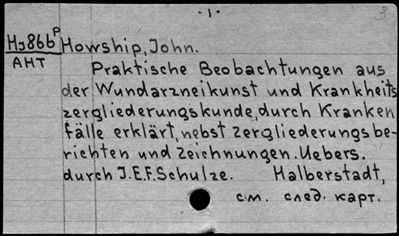 ·1·
3
Нз86бᵖ Howship, John.
АНТ Praktische Beobachtungen aus
der Wundarzneikunst und Krankheits
zergliederungskunde, durch Kranken
fälle erklärt, nebst zergliederungsbe-
richten und Zeichnungen. Uebers.
durch J.E.F. Schulze. Halberstadt,
см. след. карт.